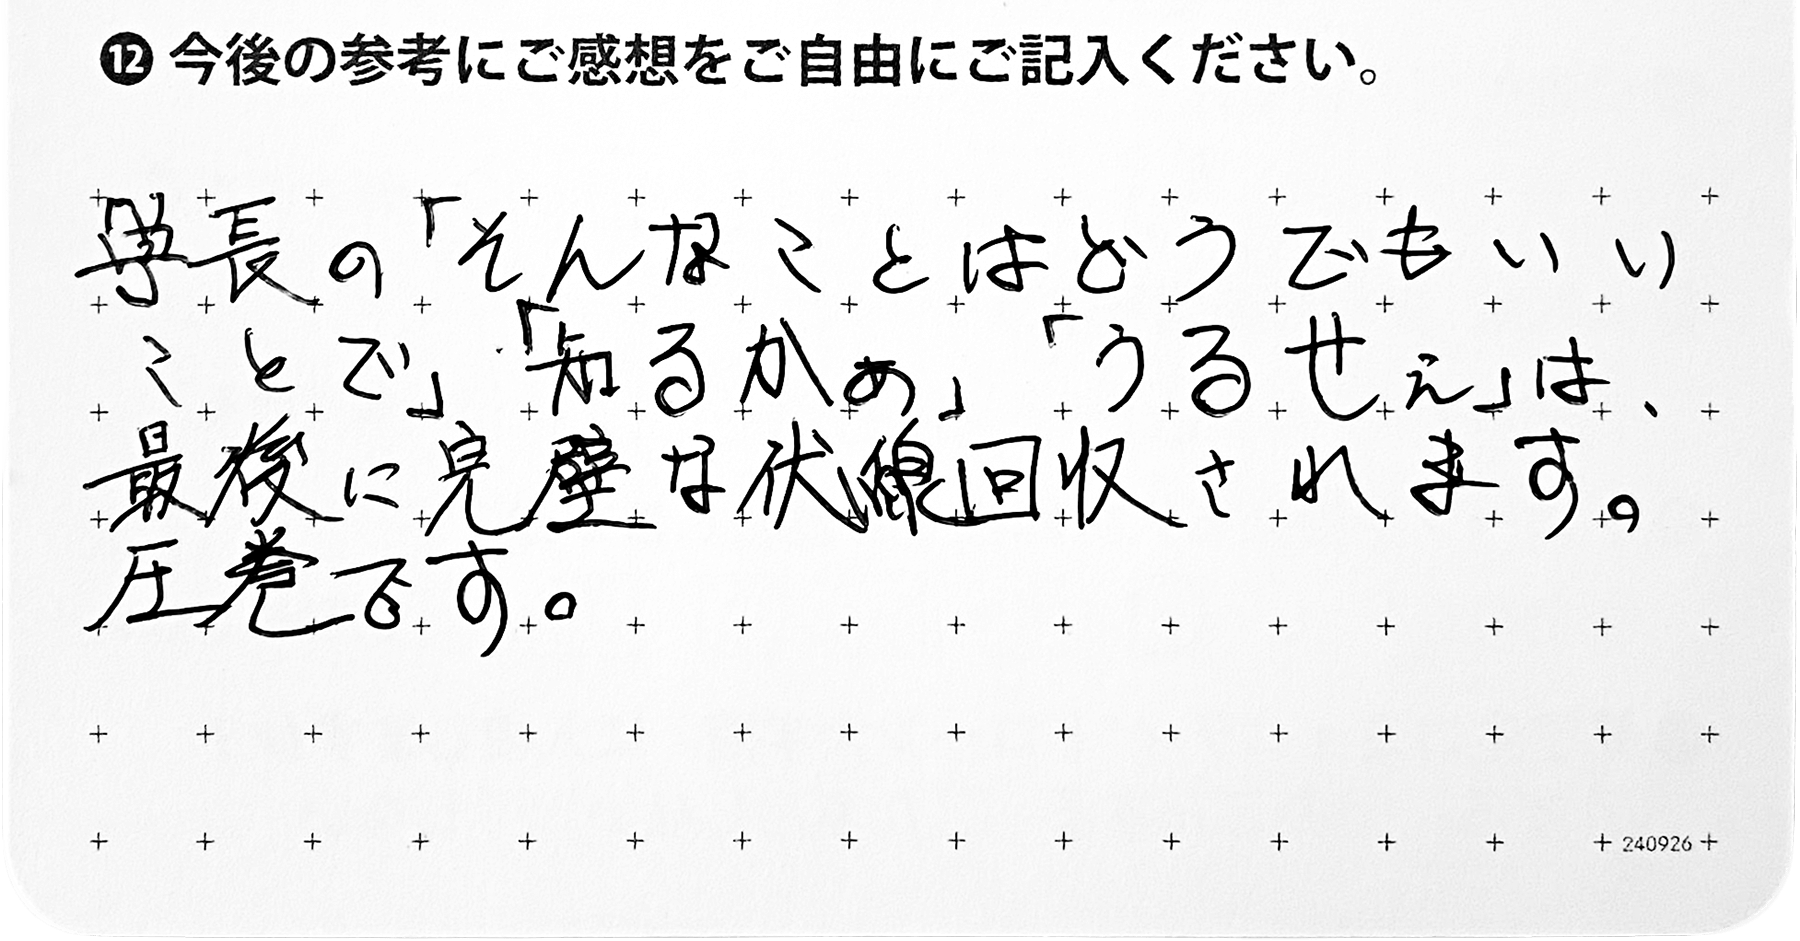 ⓬ 今後の参考にご感想をご自由にご記入ください。
学長の「そんなことはどうでもいい
ことで」「知るかぁ」「うるせぇ」は、
最後に完璧な伏線回収されます。
圧巻です。
240926